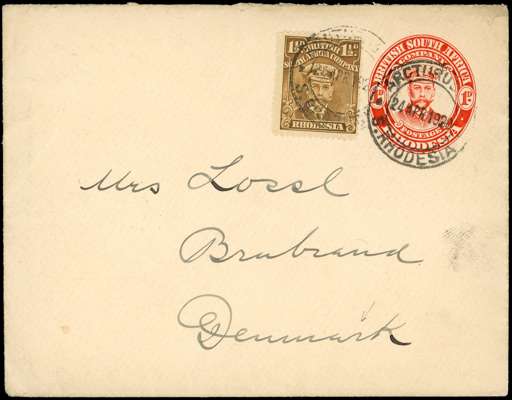 1½D 1½D
BRITISH
SOUTH AFRICA COMPANY
RHODESIA
BRITISH SOUTH AFRICA
COMPANY
1D 1D
POSTAGE
RHODESIA
ARCTURUS
24 APR 192
S. RHODESIA
Mrs Lossl
Brabrand
Denmark